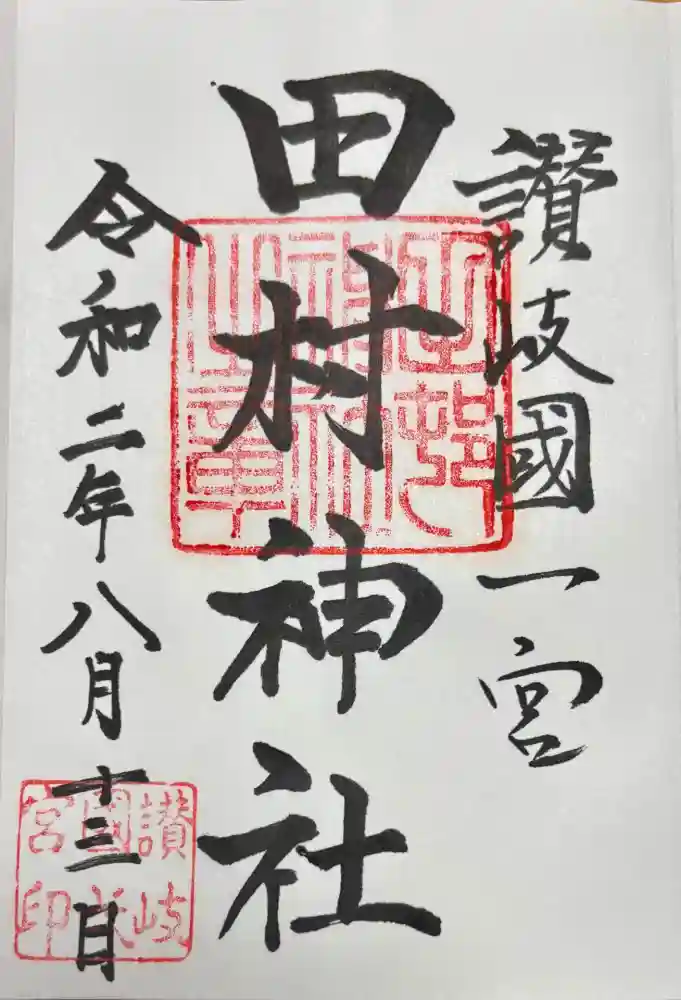 讃岐國一宮
田村神社
令和二年八月十三日
讃岐
國一
宮印